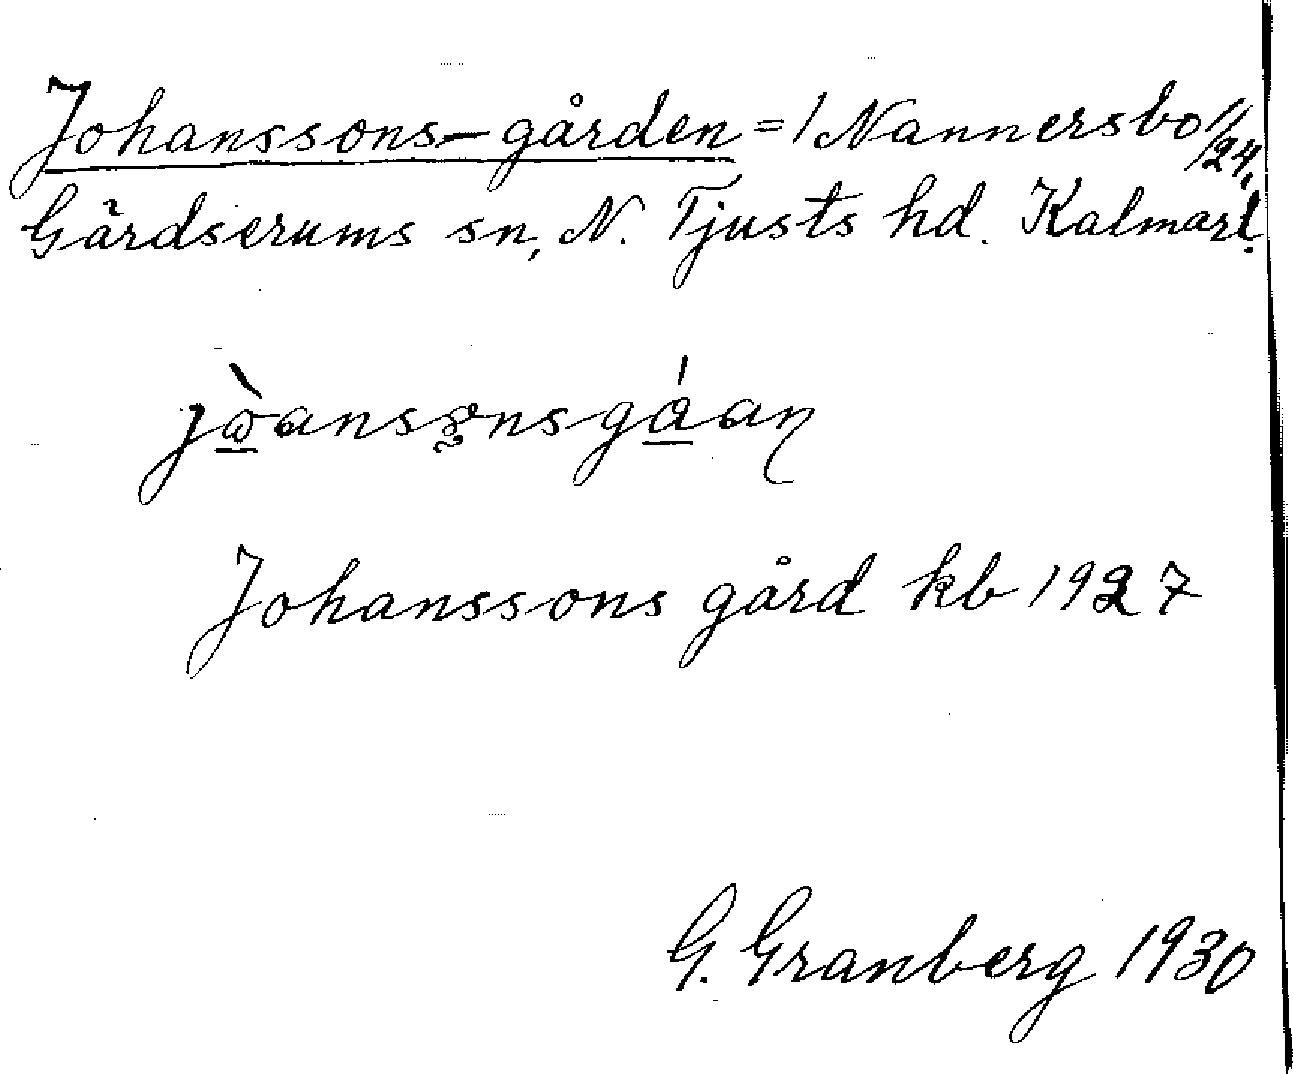 Johanssons-gården = 1 Nannersbo 11/24,
Gärdserums sn, N. Tjusts hd. Kalmarl.
Johanssons gård kb 1927
G. Granberg 1930